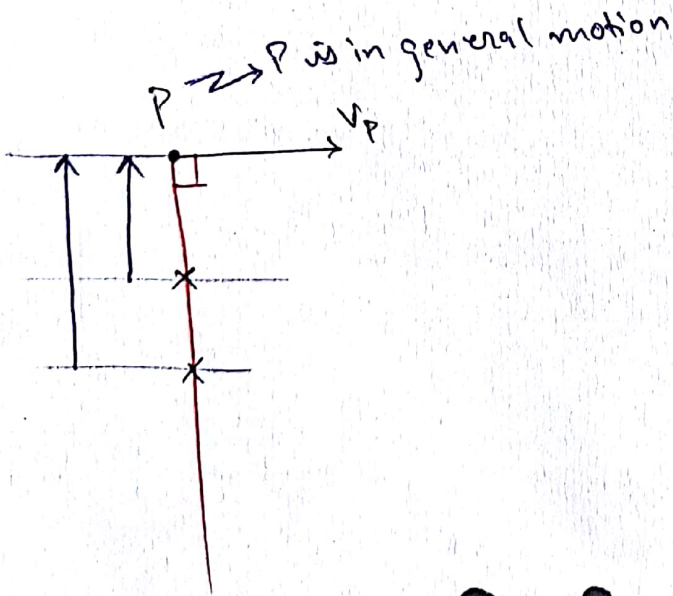 P is in general motion
P
V_P